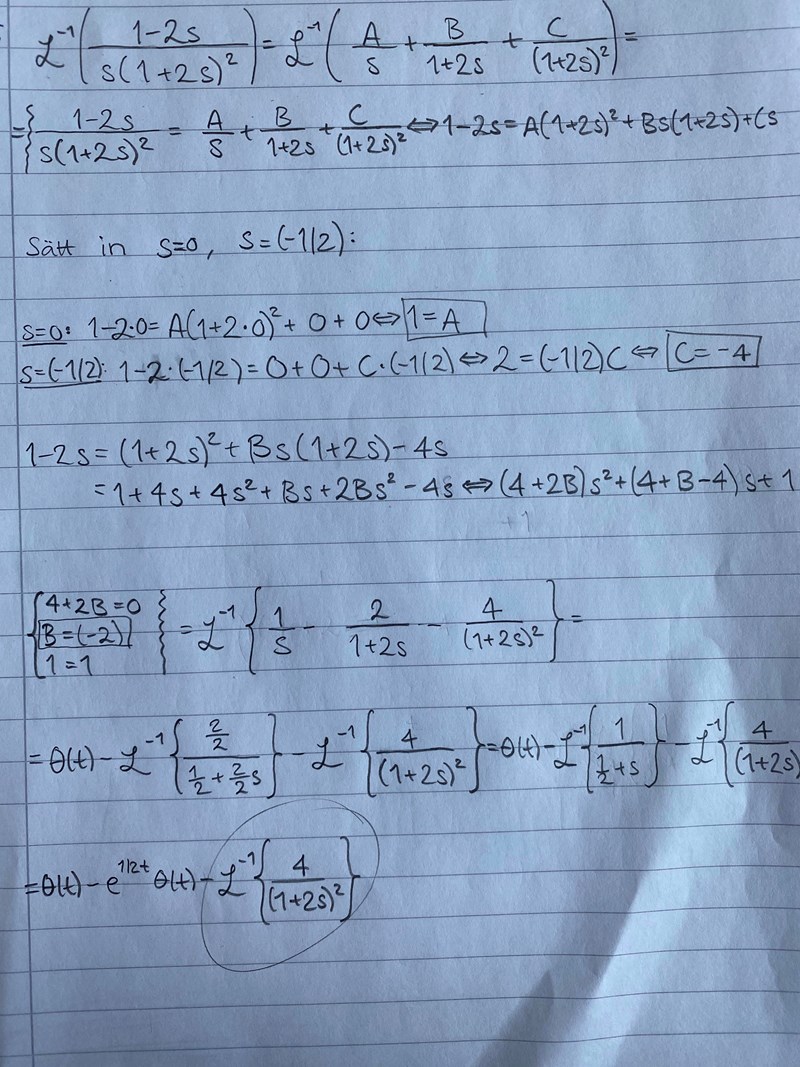 ℒ⁻¹( (1-2s)/(s(1+2s)²) ) = ℒ⁻¹( A/s + B/(1+2s) + C/(1+2s)² ) =
={ (1-2s)/(s(1+2s)²) = A/s + B/(1+2s) + C/(1+2s)² ⇔ 1-2s = A(1+2s)² + Bs(1+2s) + Cs
Sätt in s=0, s=(-1/2):
s=0: 1-2·0 = A(1+2·0)² + 0 + 0 ⇔ 1=A
s=(-1/2): 1-2·(-1/2) = 0+0+C·(-1/2) ⇔ 2=(-1/2)C ⇔ C=-4
1-2s = (1+2s)² + Bs(1+2s) - 4s
= 1+4s+4s²+Bs+2Bs²-4s ⇔ (4+2B)s²+(4+B-4)s+1
+1
{ 4+2B=0
B=(-2)
1=1 } = ℒ⁻¹{ 1/s - 2/(1+2s) - 4/(1+2s)² } =
= θ(t) - ℒ⁻¹{ (2/2)/(1/2 + 2/2 s) } - ℒ⁻¹{ 4/(1+2s)² } = θ(t) - ℒ⁻¹{ 1/(1/2+s) } - ℒ⁻¹{ 4/(1+2s)
= θ(t) - e^(1/2t) θ(t) - ℒ⁻¹{ 4/(1+2s)² }